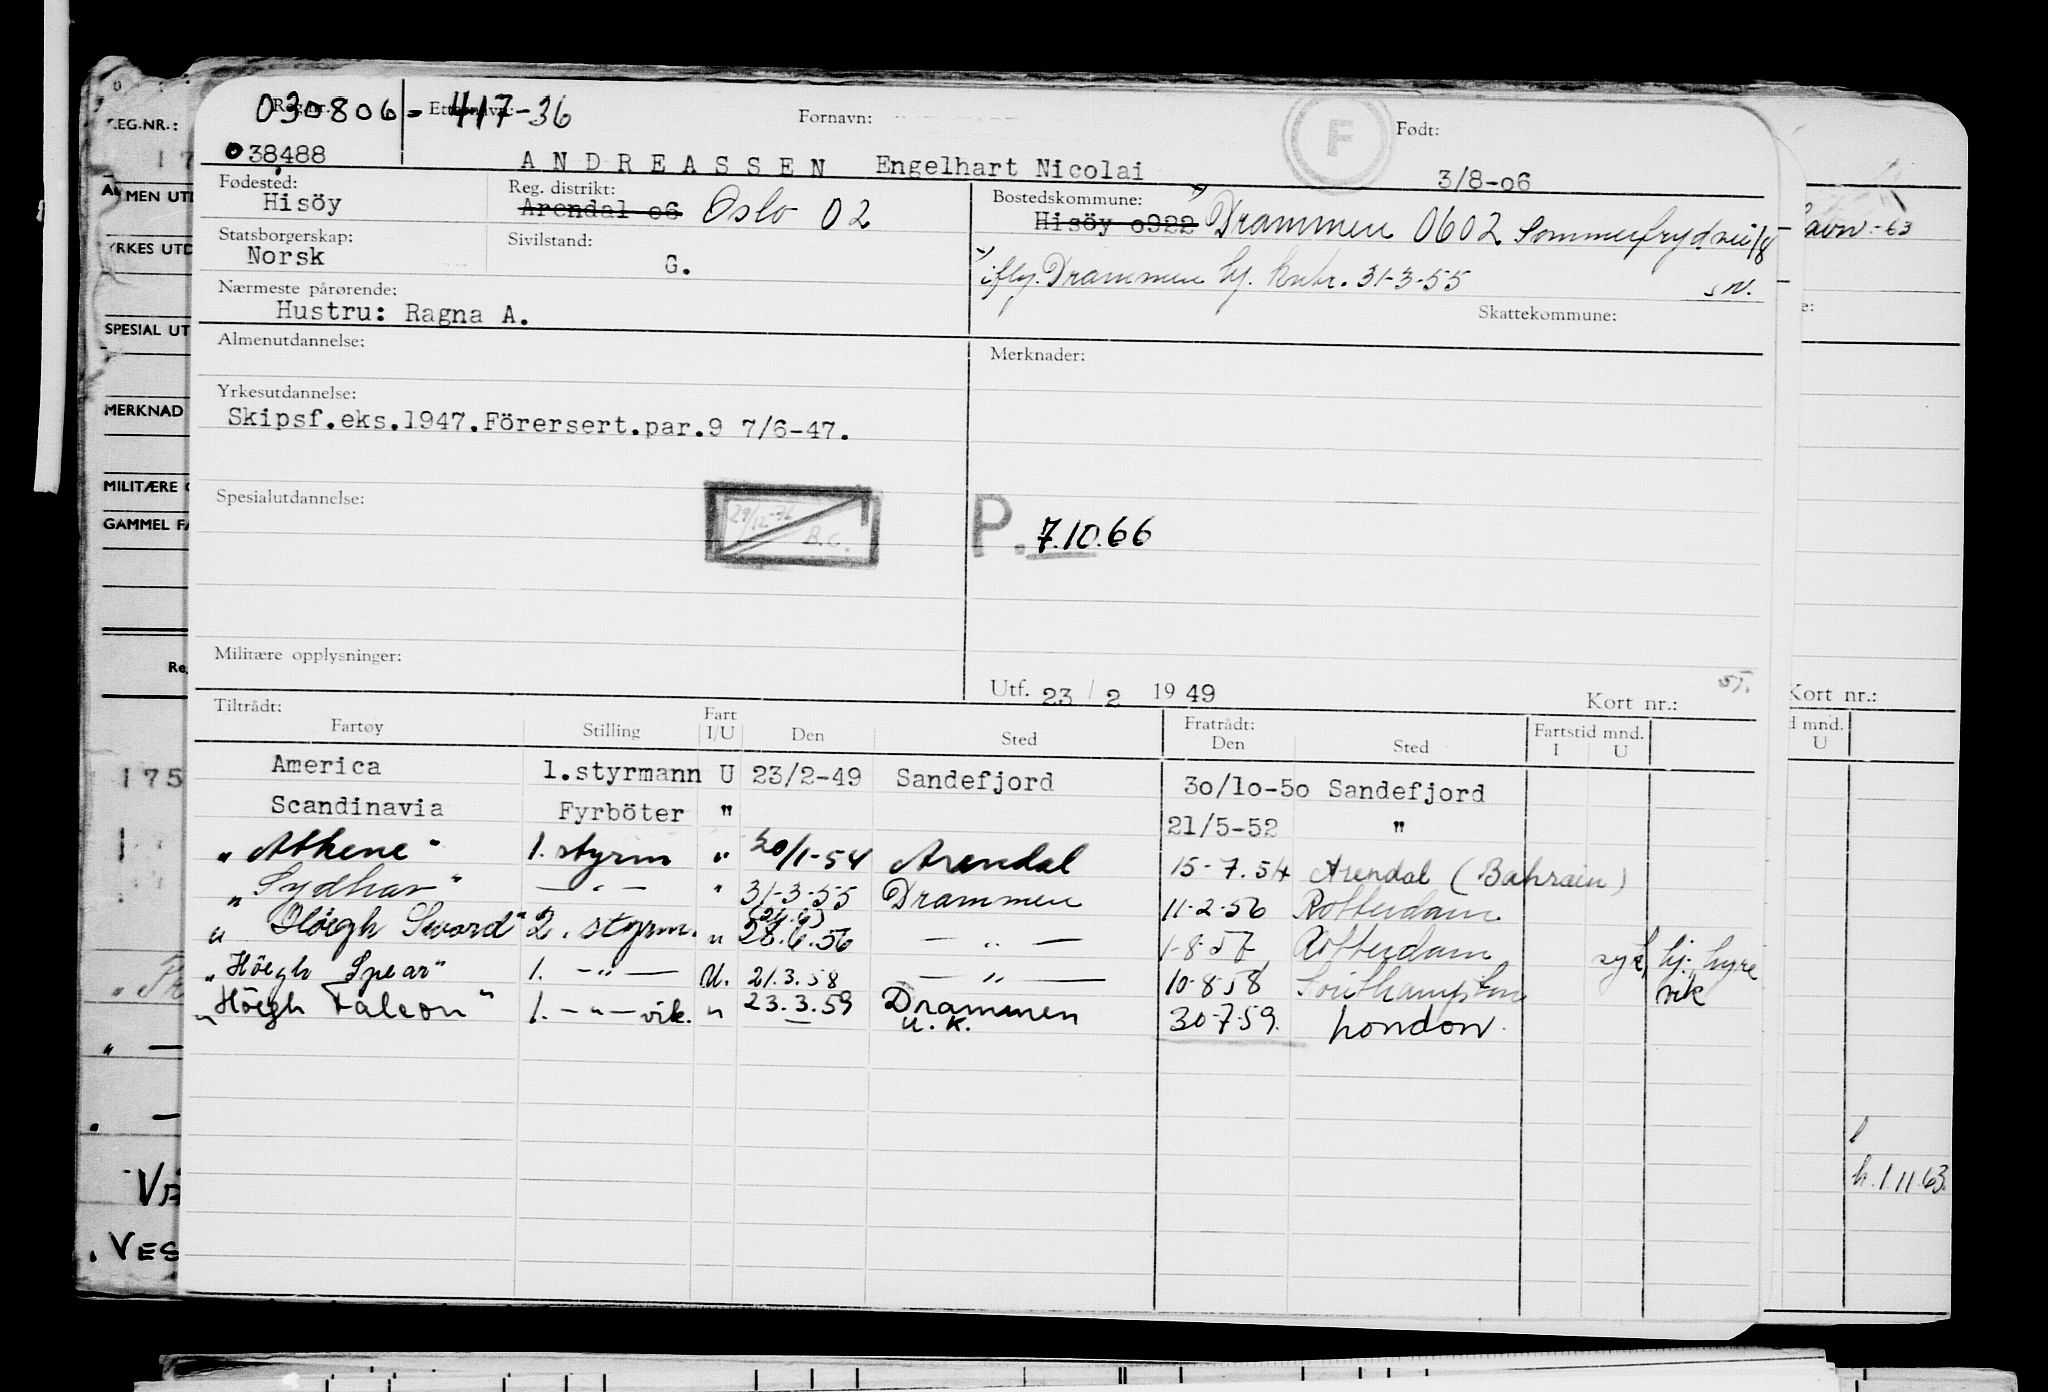 030806-417-36
Reg.nr. Etternavn: Fornavn: F Født:
038488 ANDREASSEN Engelhart Nicolai 3/8-06
Fødested: Reg. distrikt: Bostedskommune:
Hisöy Arendal 06 Oslo 02 Hisöy 0922 Drammen 0602
Statsborgerskap: Sivilstand:
Norsk G. Drammen 31-3-55
Nærmeste pårørende: Skattekommune:
Hustru: Ragna A.
Almenutdannelse: Merknader:
Yrkesutdannelse:
Skipsf.eks.1947.Förersert.par.9 7/6-47.
Spesialutdannelse:
B.C. P. 7.10.66
Militære opplysninger:
Utf. 23 / 2 19 49 Kort nr.:
Tiltrådt: Fratrådt: Fartstid mnd.
Fartøy Stilling Fart I/U Den Sted Den Sted I U
America 1.styrmann U 23/2-49 Sandefjord 30/10-50 Sandefjord
Scandinavia Fyrböter " 21/5-52 "
"Athene" 1. styrm " 20/1-54 Arendal 15-7.54 Arendal (Bahrain)
"Sydhav" — " — " 31-3-55 Drammen 11-2-56 Rotterdam
"Höegh Sword" 2. styrm. " 28.6.56 — " — 1-8-57 Rotterdam syk, hj. hyre
"Höegh Spear" 1. — " — U. 21.3.58 — " — 10-8-58 Southampton vik
"Höegh Falcon" 1. — " — vik. " 23.3.59 Drammen U.K. 30-7-59. London.
REG.NR.:
ALMEN UTD
YRKES UTD
SPESIAL UT
MERKNAD
MILITÆRE O
GAMMEL FA
Re
175
VES
havn.-63
Kort nr.:
d mnd.
U
h. 1.11.63.